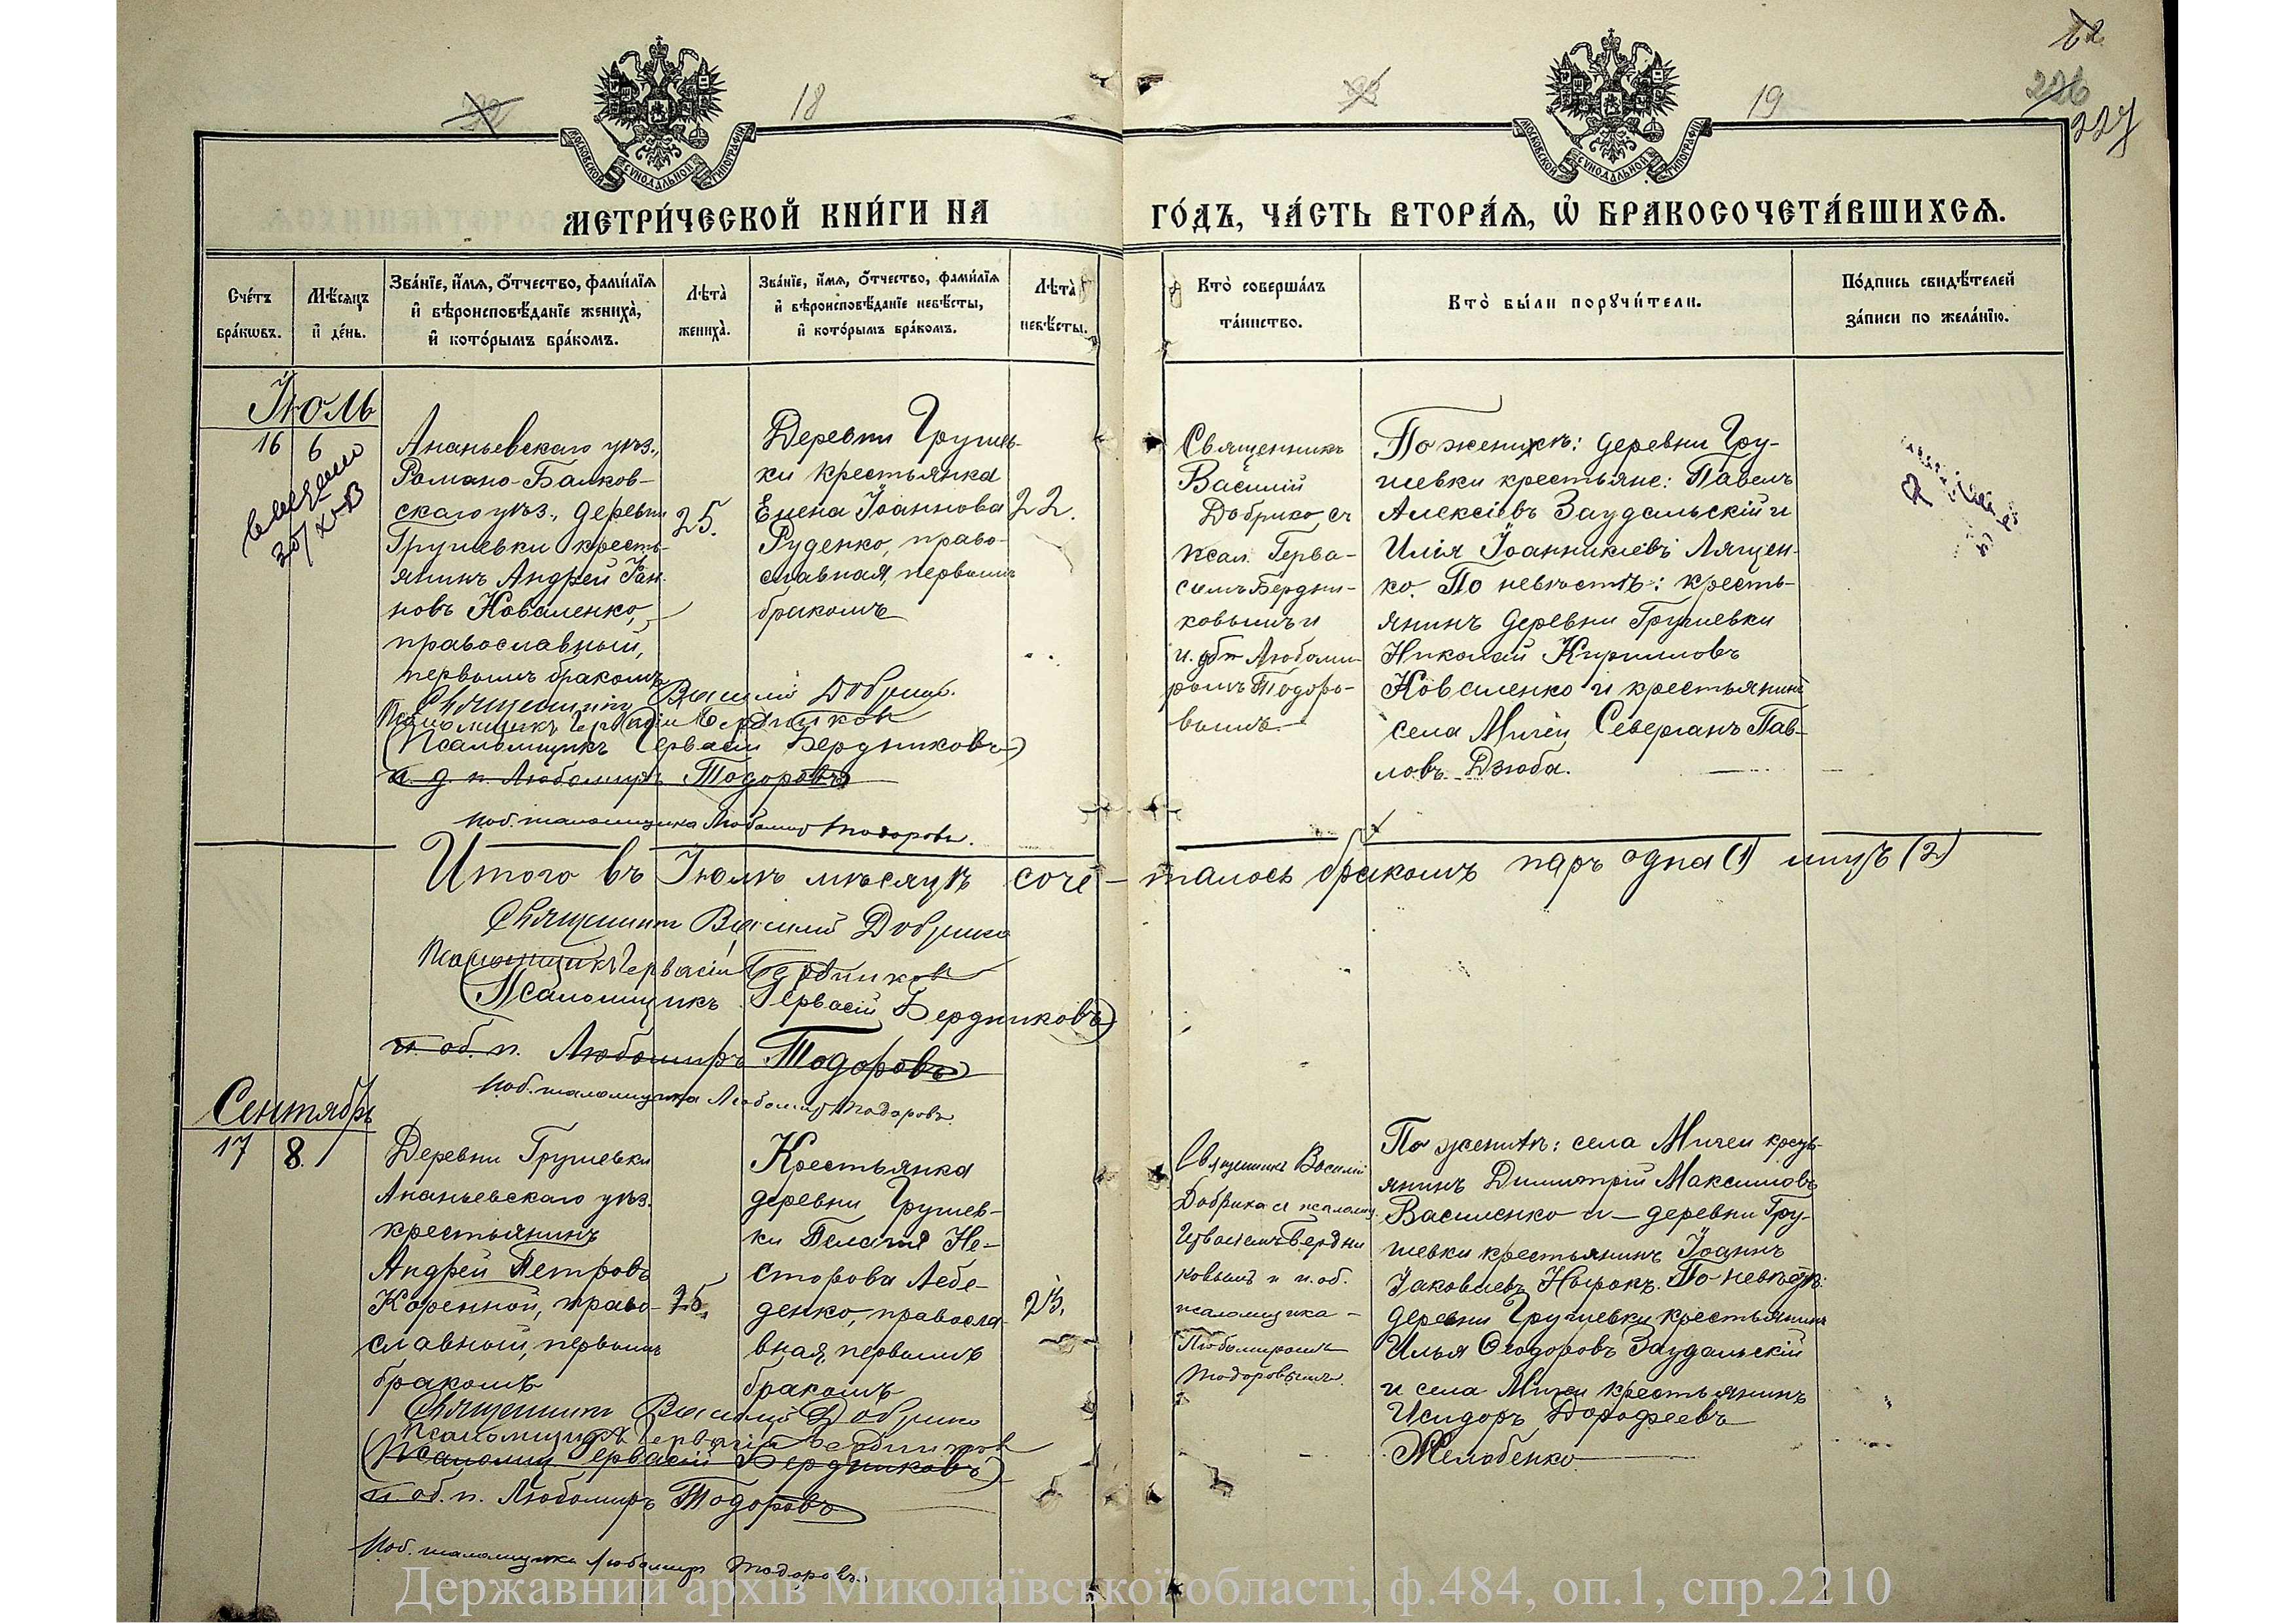 18
19
227
МОСКОВСКОЙ СѴНОДАЛЬНОЙ ТИПОГРАФІИ
МОСКОВСКОЙ СѴНОДАЛЬНОЙ ТИПОГРАФІИ
МЕТРИ́ЧЕСКОЙ КНИ́ГИ НА ГО́ДЪ, ЧА́СТЬ ВТОРА́Ѧ, Ѡ҆ БРАКОСОЧЕТА́ВШИХСѦ.
Сче́тъ бра́кѡвъ.
Мѣ́сяцъ и҆ де́нь.
Зва́нїе, и҆́мѧ, о҆́тчество, фами́лїѧ и҆ вѣроисповѣ́данїе жениха̀, и҆ кото́рымъ бра́комъ.
Лѣта̀ жениха̀.
Зва́нїе, и҆́мѧ, о҆́тчество, фами́лїѧ и҆ вѣроисповѣ́данїе невѣ́сты, и҆ кото́рымъ бра́комъ.
Лѣта̀ невѣ́сты.
Кто̀ соверша́лъ та́инство.
Кто̀ бы́ли порꙋчи́тели.
По́дпись свидѣ́телей за́писи по жела́нїю.
Іюль
16
6
Ананьевскаго уѣз.,
Романо-Балков-
скаго уѣз., деревни
Грушевки кресть-
янинъ Андрей Іан-
новъ Коваленко,
православный,
первымъ бракомъ
25.
Деревни Грушев-
ки крестьянка
Елена Іоаннова
Руденко, право-
славная, первымъ
бракомъ
22.
Священникъ
Василій
Добрико съ
псал. Герва-
сіемъ Бердни-
ковымъ и
и. об. Любоми-
ромъ Тодоро-
вымъ.
По женихѣ: деревни Гру-
шевки крестьяне: Павелъ
Алексіевъ Заудальскій и
Илія Іоанникіевъ Лящен-
ко. По невѣстѣ: кресть-
янинъ деревни Грушевки
Николай Кирилловъ
Коваленко и крестьянинъ
села Мигеи Северіанъ Пав-
ловъ Дзюба.
Священникъ Василій Добрико
Псаломщикъ Гервасій Бердниковъ
(Псаломщикъ Гервасій Бердниковъ)
и. д. п. Любомиръ Тодоровъ
И об. псаломщика Любомиръ Тодоровъ.
Итого въ Іюлѣ мѣсяцѣ соче-талось бракомъ паръ одна (1) лицъ (2)
Священникъ Василій Добрико
Псаломщикъ Гервасій Бердниковъ
(Псаломщикъ Гервасій Бердниковъ)
и. об. п. Любомиръ Тодоровъ
И об. псаломщика Любомиръ Тодоровъ.
Сентябрь
17
8.
Деревни Грушевки
Ананьевскаго уѣз.
крестьянинъ
Андрей Петровъ
Коренной, право-
славный, первымъ
бракомъ
25.
Крестьянка
деревни Грушев-
ки Пелагія Не-
сторова Лебе-
денко, правосла-
вная, первымъ
бракомъ
Священникъ Василій
Добрико съ псаломщ.
Гервасіемъ Бердни
ковымъ и и. об.
псаломщика -
Любомиромъ
Тодоровымъ.
По женихѣ: села Мигеи кресть-
янинъ Димитрій Максимовъ
Василенко и - деревни Гру-
шевки крестьянинъ Іоаннъ
Іаковлевъ Нырокъ. По невѣстѣ:
деревни Грушевки крестьянинъ
Илья Ѳеодоровъ Заудальскій
и села Мигеи крестьянинъ
Исидоръ Дорофеевъ
Желобенко
Священникъ Василій Добрико
Псаломщикъ Гервасій Бердниковъ
(Псаломщ. Гервасій Бердниковъ)
и. об. п. Любомиръ Тодоровъ
И об. псаломщика Любомиръ Тодоровъ.
Державний архів Миколаївської області, ф.484, оп.1, спр.2210